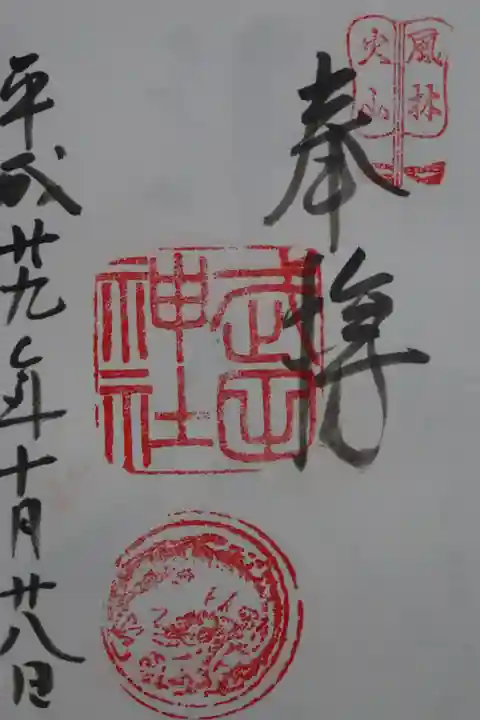 風林
火山
奉拝
武田
神社
平成廿九年十月廿八日